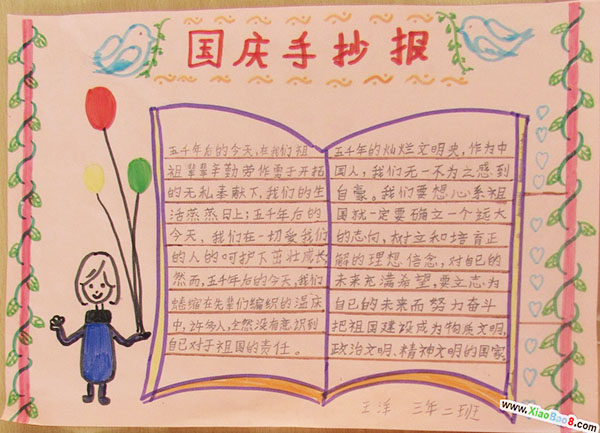 国庆手抄报
五千年后的今天,在我们祖
祖辈辈辛勤劳作勇于开拓
的无私奉献下,我们的生
活蒸蒸日上;五千年后的
今天,我们在一切爱我们
的人的呵护下茁壮成长
然而,五千年后的今天,我们
蜷缩在先辈们编织的温床
中,许多人,全然没有意识到
自己对于祖国的责任。
五千年的灿烂文明史,作为中
国人,我们无一不为之感到
自豪。我们要想心系祖
国就一定要确立一个远大
的志向,树立和培育正
解的理想信念,对自己的
未来充满希望,要立志为
自己的未来而努力奋斗
把祖国建设成为物质文明,
政治文明、精神文明的国家
王洋 三年二班
www.XiaoBao8.com